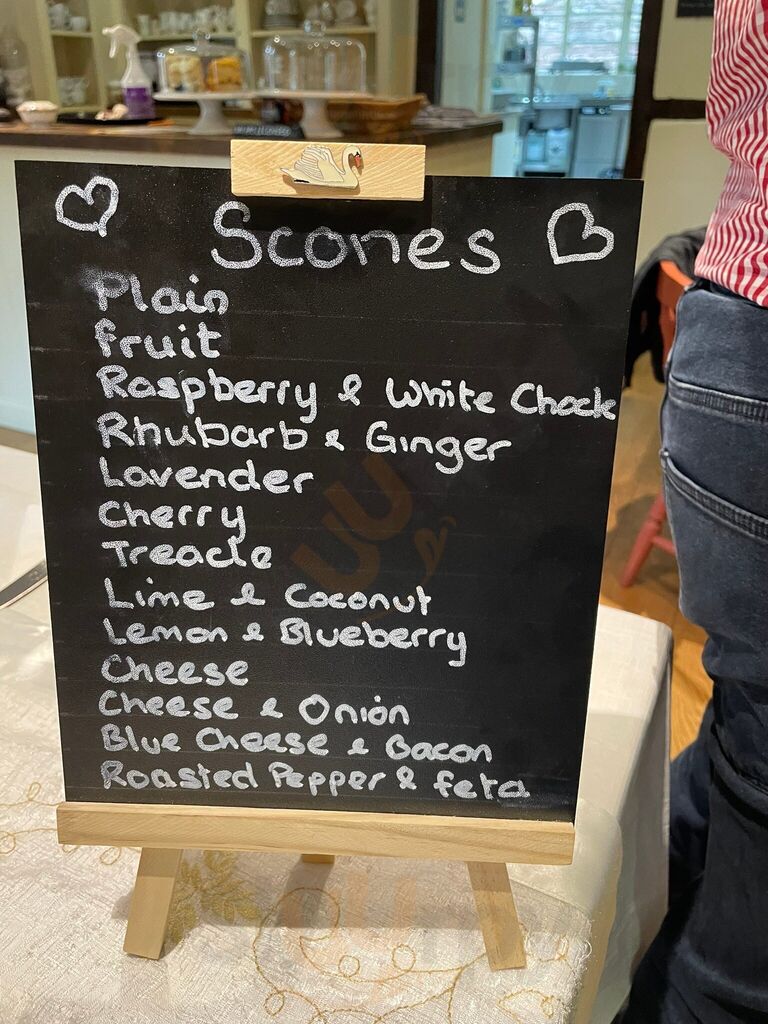 Scones
Plain
fruit
Raspberry & White Chock
Rhubarb & Ginger
Lavender
Cherry
Treacle
Lime & Coconut
Lemon & Blueberry
Cheese
Cheese & Onion
Blue Cheese & Bacon
Roasted Pepper & feta